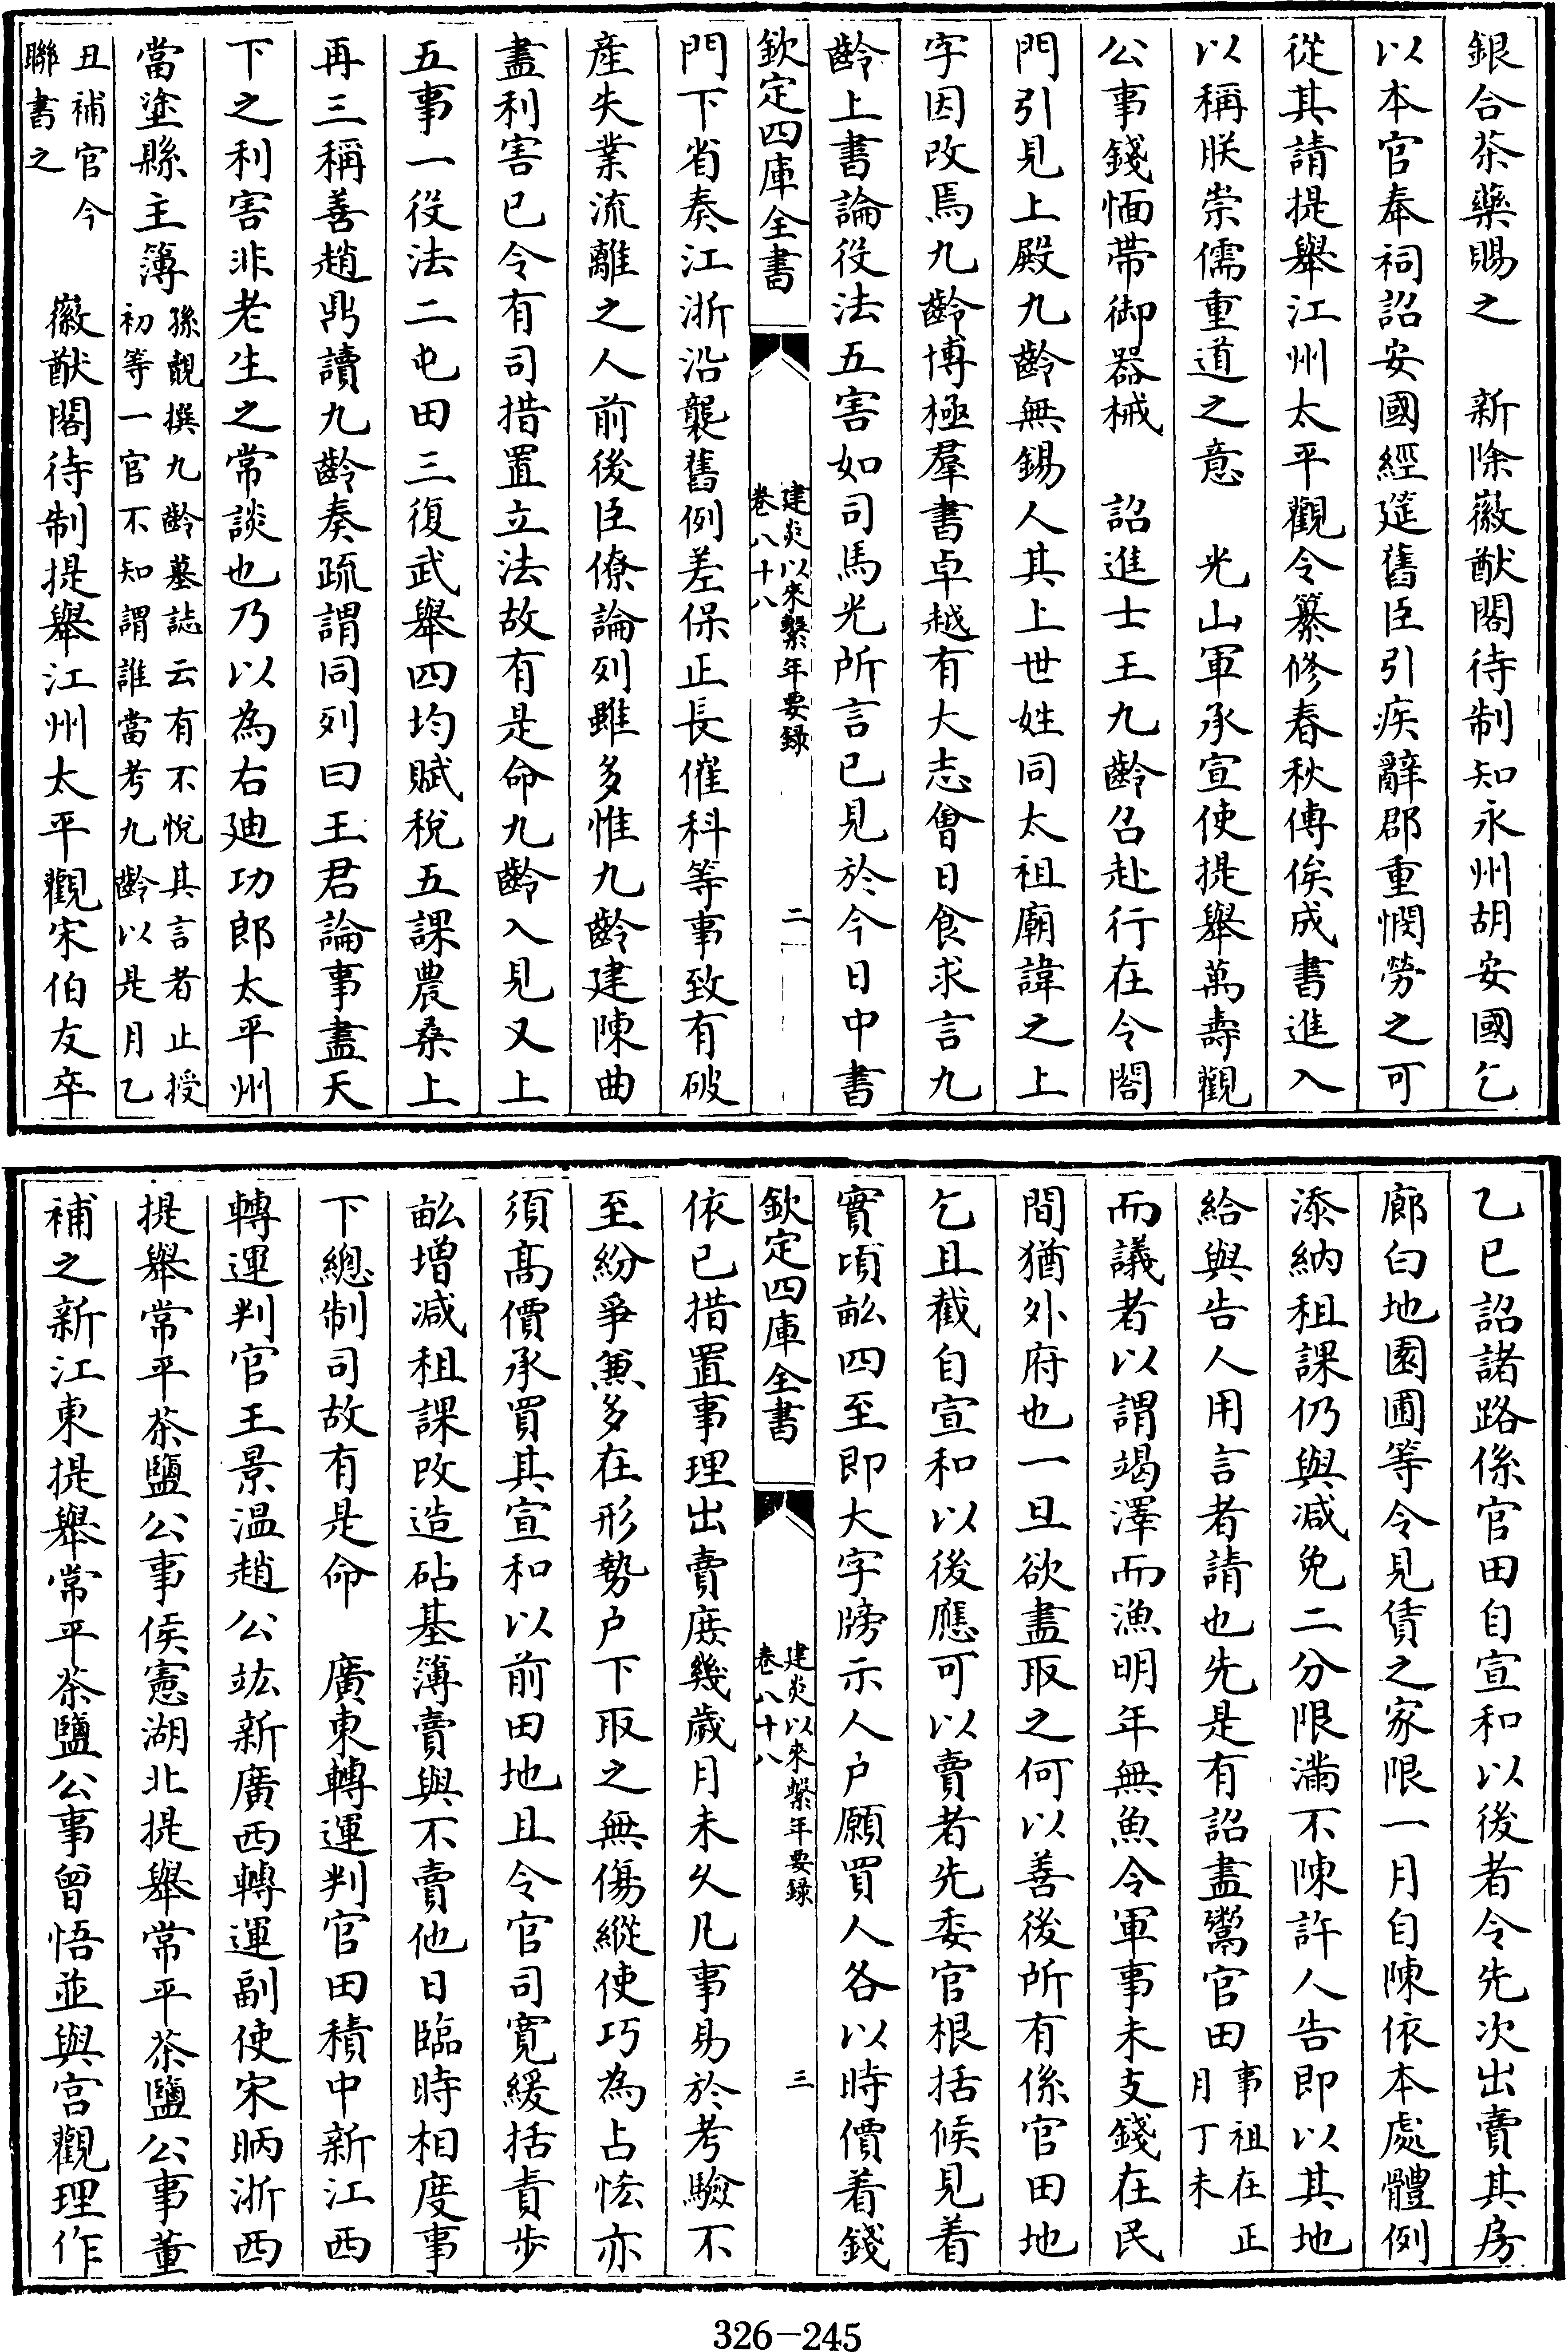 銀合茶藥賜之　新除徽猷閣待制知永州胡安國乞
以本官奉祠詔安國經筵舊臣引疾辭郡重憫勞之可
從其請提舉江州太平觀令纂修春秋傳俟成書進入
以稱朕崇儒重道之意　光山軍承宣使提舉萬壽觀
公事錢愐帶御器械　詔進士王九齡召赴行在令閤
門引見上殿九齡無錫人其上世姓同太祖廟諱之上
字因改焉九齡博極羣書卓越有大志會日食求言九
齡上書論役法五害如司馬光所言已見於今日中書
欽定四庫全書　建炎以來繫年要録　卷八十八　二
門下省奏江浙沿襲舊例差保正長催科等事致有破
産失業流離之人前後臣僚論列雖多惟九齡建陳曲
盡利害已令有司措置立法故有是命九齡入見又上
五事一役法二屯田三復武舉四均賦稅五課農桑上
再三稱善趙鼎讀九齡奏疏謂同列曰王君論事盡天
下之利害非老生之常談也乃以為右廸功郎太平州
當塗縣主簿孫覿撰九齡墓誌云有不悅其言者止授
初等一官不知謂誰當考九齡以是月乙
丑補官今
聯書之　徽猷閣待制提舉江州太平觀宋伯友卒
乙巳詔諸路係官田自宣和以後者令先次出賣其房
廊白地園圃等令見賃之家限一月自陳依本處體例
添納租課仍與减免二分限滿不陳許人告即以其地
給與告人用言者請也先是有詔盡鬻官田事祖在正
月丁未
而議者以謂竭澤而漁明年無魚令軍事未支錢在民
間猶外府也一旦欲盡取之何以善後所有係官田地
乞且截自宣和以後應可以賣者先委官根括候見着
實頃畝四至即大字牓示人户願買人各以時價着錢
欽定四庫全書　建炎以來繫年要録　卷八十八　三
依已措置事理出賣庶幾歲月未久凡事易於考驗不
至紛爭兼多在形勢户下取之無傷縱使巧為占恡亦
須髙價承買其宣和以前田地且令官司寛緩括責步
畝增减租課改造砧基簿賣與不賣他日臨時相度事
下總制司故有是命　廣東轉運判官田積中新江西
轉運判官王景温趙公竑新廣西轉運副使宋昞浙西
提舉常平茶鹽公事侯憲湖北提舉常平茶鹽公事董
補之新江東提舉常平茶鹽公事曾悟並與宫觀理作
326-245